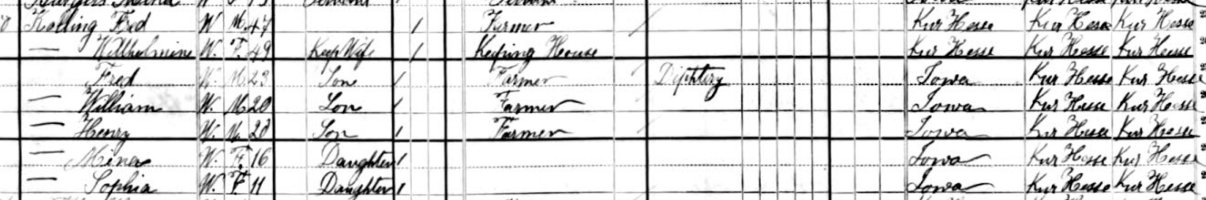 Kolling Fred W. M 47 1 Farmer / Kur Hesse Kur Hesse Kur Hesse
— Willhelmine W. F. 49 Wife 1 Keeping House Kur Hesse Kur Hesse Kur Hesse
— Fred W M 23 Son 1 Farmer Diphtery Iowa Kur Hesse Kur Hesse
— William W. M 20 Son 1 Farmer Iowa Kur Hesse Kur Hesse
— Henry W. M. 20 Son 1 Farmer Iowa Kur Hesse Kur Hesse
— Mina W. F. 16 Daughter 1 Iowa Kur Hesse Kur Hesse
— Sophia W. F 11 Daughter 1 Iowa Kur Hesse Kur Hesse